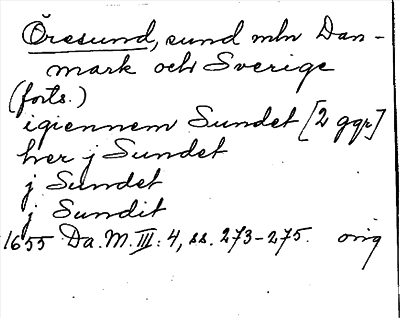 Öresund, sund mln Dan-
mark och Sverige
(forts.)
igiennem Sundet [2 ggr]
her j Sundet
j Sundet
j Sundit
1655 Da. M. III: 4, ss. 273-275. orig